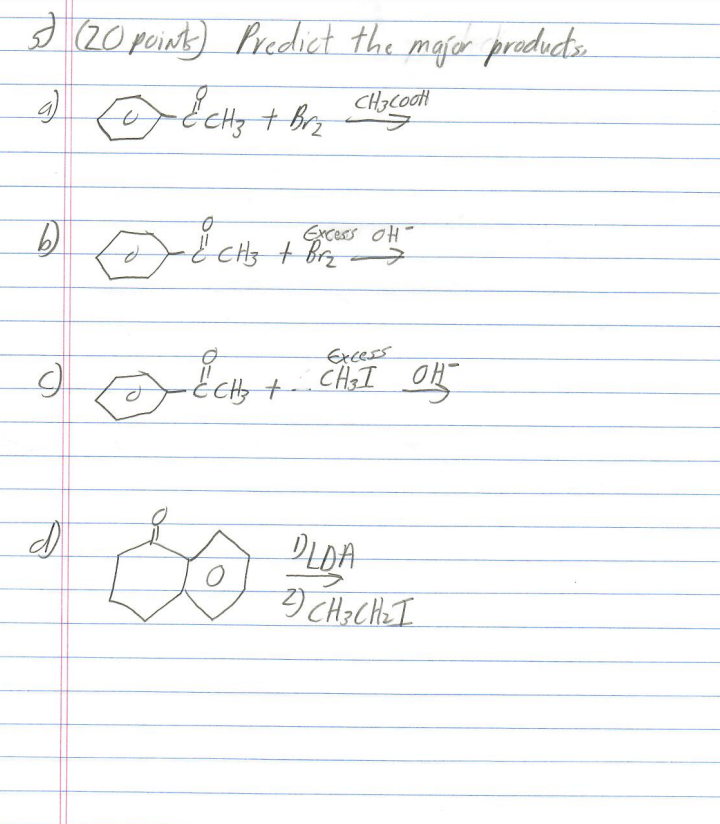 5) (20 points) Predict the major products.
a) O
CCH3 + Br2 CH3COOH
b) O
CCH3 + Excess Br2 OH-
c) O
CCH3 + ... Excess CH3I OH-
d) O
1) LDA
2) CH3CH2I